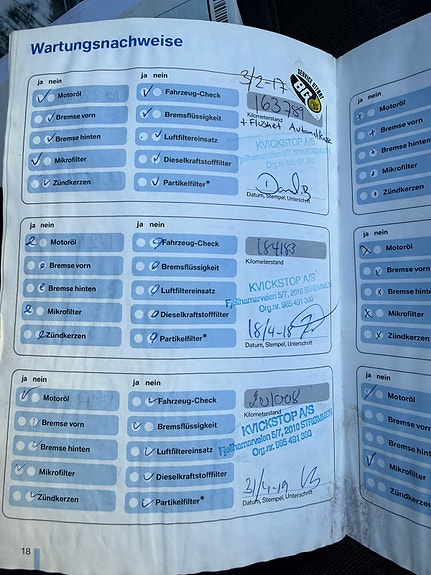 Wartungsnachweise
ja nein
ja nein
Motoröl
Bremse vorn
Bremse hinten
Mikrofilter
Zündkerzen
Fahrzeug-Check
Bremsflüssigkeit
Luftfiltereinsatz
Dieselkraftstofffilter
Partikelfilter*
3/2-17
Kilometerstand
KVICKSTOP A/S
Datum, Stempel, Unterschrift
ja nein
ja nein
Motoröl
Bremse vorn
Bremse hinten
Mikrofilter
Zündkerzen
Fahrzeug-Check
Bremsflüssigkeit
Luftfiltereinsatz
Dieselkraftstofffilter
Partikelfilter*
184183
Kilometerstand
KVICKSTOP A/S
Fjellhamarveien 5/7, 2010 STRØMMEN
Org.nr. 985 491 380
18/4-18
Datum, Stempel, Unterschrift
ja nein
ja nein
Motoröl
Bremse vorn
Bremse hinten
Mikrofilter
Zündkerzen
Fahrzeug-Check
Bremsflüssigkeit
Luftfiltereinsatz
Dieselkraftstofffilter
Partikelfilter*
201008
Kilometerstand
KVICKSTOP A/S
Fjellhamarveien 5/7, 2010 STRØMMEN
Org.nr. 985 491 380
3/4-19
Datum, Stempel, Unterschrift
18
ja nein
Motoröl
Bremse vorn
Bremse hinten
Mikrofilter
Zündkerzen
ja nein
Motoröl
Bremse vorn
Bremse hinten
Mikrofilter
Zündkerzen
ja nein
Motoröl
Bremse vorn
Mikrofilter
Zündkerzen